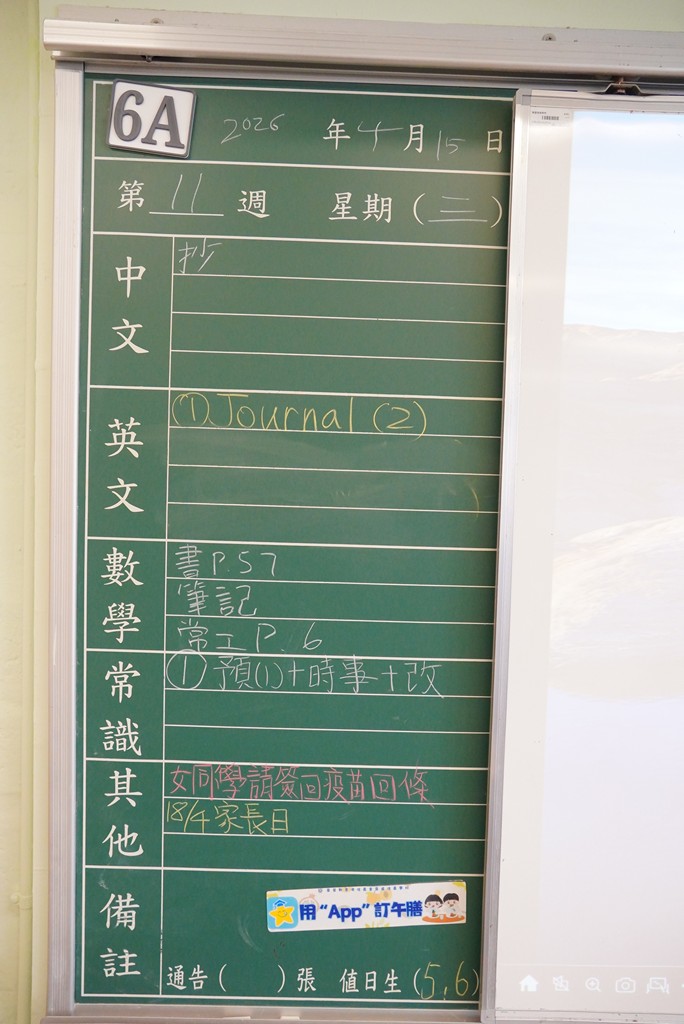 6A
2026 年 4 月 15 日
第 11 週 星期 (三)
中文
抄
英文
① Journal (2)
數學
書 P.57
筆記
常工 P. 6
常識
① 預(1)+時事+改
其他
女同學請簽回疫苗回條
18/4 家長日
備註
用“App”訂午膳
通告( )張 值日生(5,6)